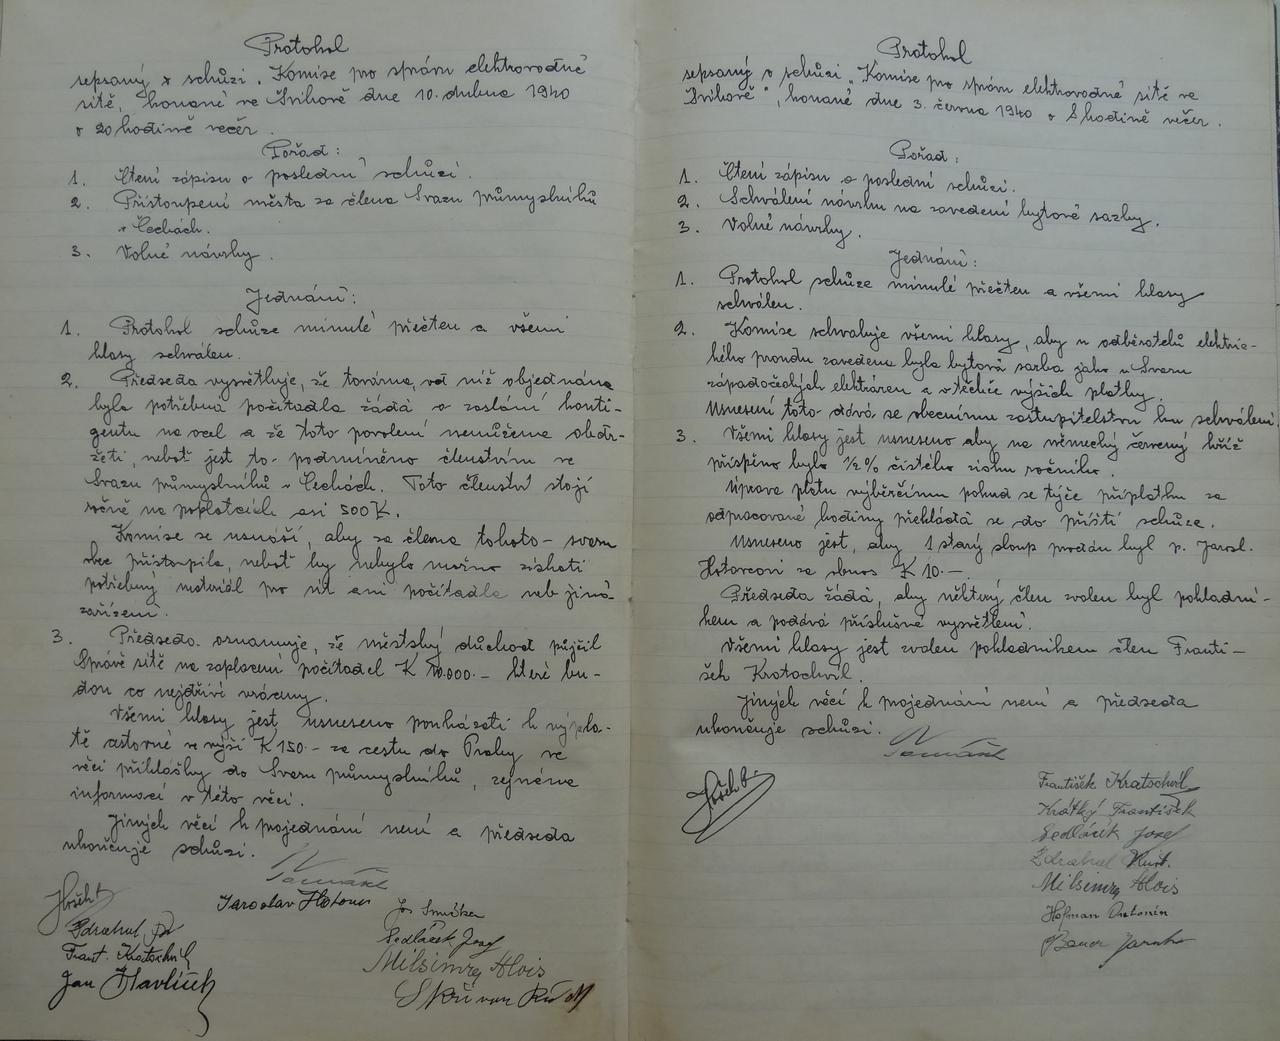 Protokol
sepsaný v schůzi „Komise pro správu elektrovodné
sítě, konané ve Švihově dne 10. dubna 1940
o 20 hodině večer.
Pořad:
1. Čtení zápisu o poslední schůzi.
2. Přistoupení města za člena Svazu průmyslníků
v Čechách.
3. Volné návrhy.
Jednání:
1. Protokol schůze minulé přečten a všemi
hlasy schválen.
2. Předseda vysvětluje, že továrna, od níž objednána
byla potřebná počitadla žádá o zaslání konti-
gentu na ocel a že toto povolení nemůžeme obdr-
žeti, neboť jest to podmíněno členstvím ve
Svazu průmyslníků v Čechách. Toto členství stojí
ročně na poplatcích asi 500 K.
Komise se usnáší, aby za člena tohoto svazu
obec přistoupila, neboť by nebylo možno získati
potřebný materiál pro síť ani počítadla neb jiná
zařízení.
3. Předseda oznamuje, že městský důchod půjčil
Správě sítě na zaplacení počítadel K 10.000.- které bu-
dou co nejdříve vráceny.
Všemi hlasy jest usneseno poukázati k výpla-
tě v výši K 150.- za cestu do Prahy ve
věci přihlášky do Svazu průmyslníků, zejména
informací v této věci.
Jiných věcí k projednání není a předseda
ukončuje schůzi.
Tomášek
Jaroslav Hotovec
Zdráhal
Frant. Kratochvíl
Jan Havlíček
Sedláček Josef
Milsimrg Alois
Skřivan
Protokol
sepsaný o schůzi „Komise pro správu elektrovodné sítě ve
Švihově", konané dne 3. června 1940 o 8 hodině večer.
Pořad:
1. Čtení zápisu o poslední schůzi.
2. Schválení návrhu na zavedení bytové sazby.
3. Volné návrhy.
Jednání:
1. Protokol schůze minulé přečten a všemi hlasy
schválen.
2. Komise schvaluje všemi hlasy, aby u odběratelů elektric-
kého proudu zavedena byla bytová sazba jako u Svazu
západočeských elektráren a v téchže výších platby.
Usnesení toto dává se obecnímu zastupitelstvu ku schválení.
3. Všemi hlasy jest usneseno aby na německý červený kříž
přispěno bylo ½% čistého zisku ročního.
Úprava platu výběrčímu pokud se týče příplatku za
odpracované hodiny překládá se do příští schůze.
Usneseno jest, aby 1 starý sloup prodán byl p. Jarosl.
Hotovcovi za obnos K 10.-
Předseda žádá, aby některý člen zvolen byl pokladní-
kem a podává příslušné vysvětlení.
Všemi hlasy jest zvolen pokladníkem člen Franti-
šek Kratochvíl.
Jiných věcí k projednání není a předseda
ukončuje schůzi.
Tomášek
František Kratochvíl
Krátký František
Sedláček Josef
Zdráhal
Milsimrg Alois
Hofman Antonín